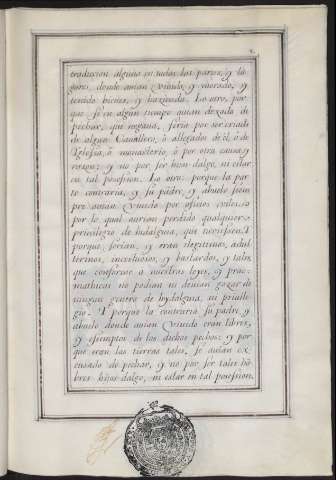 tradiccion alguna en todas las partes, y lu
gares, donde auian viuido, y morado, y
tenido bienes, y hazienda. Lo otro, por
que si en algun tiempo auian dexado de
pechar, que negaua, seria por ser criado
de algun Cauallero, ò allegados de èl, ò de
Yglesia, ò monasterio, ò por otra causa, y
razon; y no por ser hijos dalgo, ni estar
en tal possesion. Lo otro: porque la par
te contraria, y su padre, y abuelo siem
pre auian viuido por oficios viles,
por lo qual aurian perdido qualquiera
priuilegio de hidalguia, que tuuiessen. Y
porque serian, y eran ilegitimos, adul
terinos, incestuosos, y bastardos, y tales
que conforme a nuestras leyes, y prac
mathicas no podian ni deuian gozar de
ningun genero de hydalguia, ni priuile
gio. Y porque la contraria su padre, y
abuelo donde auian viuido eran libres,
y essemptos de los dichos pechos: y por
que eran las tierras tales, se auian ex
cusado de pechar, y no por ser tales hõ
bres hijos dalgo, ni estar en tal possesion.